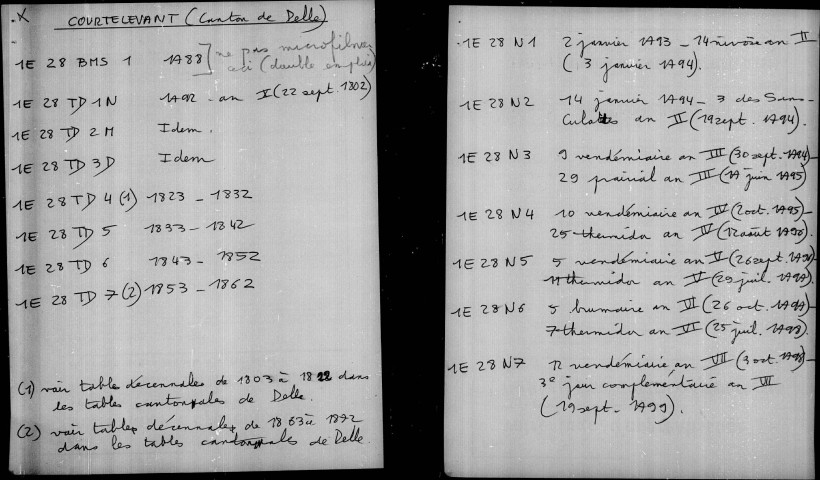 X COURTELEVANT (Canton de Delle)
1E 28 BMS 1 1788 ne pas microfilmer
ceci (double emploi)
1E 28 TD 1N 1792 - an X (22 sept. 1802)
1E 28 TD 2M Idem.
1E 28 TD 3D Idem
1E 28 TD 4 (1) 1823 - 1832
1E 28 TD 5 1833 - 1842
1E 28 TD 6 1843 - 1852
1E 28 TD 7 (2) 1853 - 1862
(1) voir table décennales de 1803 à 1822 dans
les tables cantonales de Delle.
(2) voir tables décennales de 1863 à 1872
dans les tables cantonales de Delle.
1E 28 N1 2 janvier 1793 - 14 nivôse an II
(3 janvier 1794).
1E 28 N2 14 janvier 1794 - 3 des Sans-
Culottes an II (19 sept. 1794).
1E 28 N3 9 vendémiaire an III (30 sept. 1794) -
29 prairial an III (17 juin 1795)
1E 28 N4 10 vendémiaire an IV (2 oct. 1795) -
25 thermidor an IV (12 août 1796).
1E 28 N5 5 vendémiaire an V (26 sept. 1796) -
11 thermidor an V (29 juil. 1797).
1E 28 N6 5 brumaire an VI (26 oct. 1797) -
7 thermidor an VI (25 juil. 1798).
1E 28 N7 12 vendémiaire an VII (3 oct. 1798) -
3e jour complémentaire an VII
(19 sept. 1799).